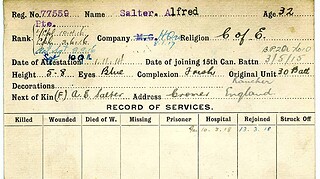 Reg. No. 77559 Name Salter, Alfred Age. 32
Pte.
Rank Company Religion C of E.
Date of Attestation Date of joining 15th Can. Battn 3/5/15
Height 5-8 Eyes Blue Complexion Fresh Original Unit 30 Batt
Decorations
Next of Kin (F) A. E. Salter Address Cromer England
RECORD OF SERVICES.
Killed Wounded Died of W. Missing Prisoner Hospital Rejoined Struck Off
10.3.18 13.3.18